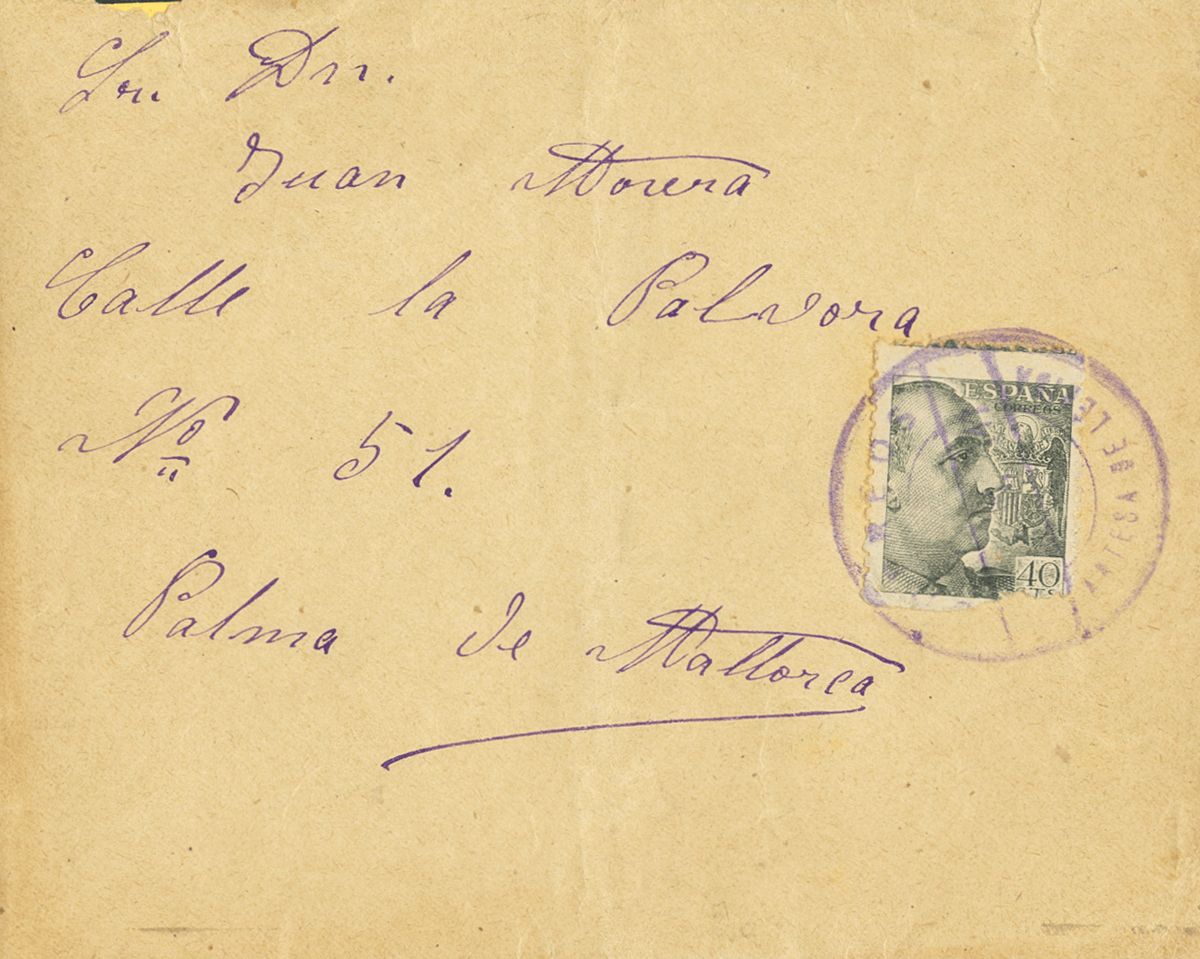 Sr. Dn.
Juan Morera
Calle la Palvora
Nº 51.
Palma de Mallorca
ESPAÑA
CORREOS
40
CTS
ARTESA DE